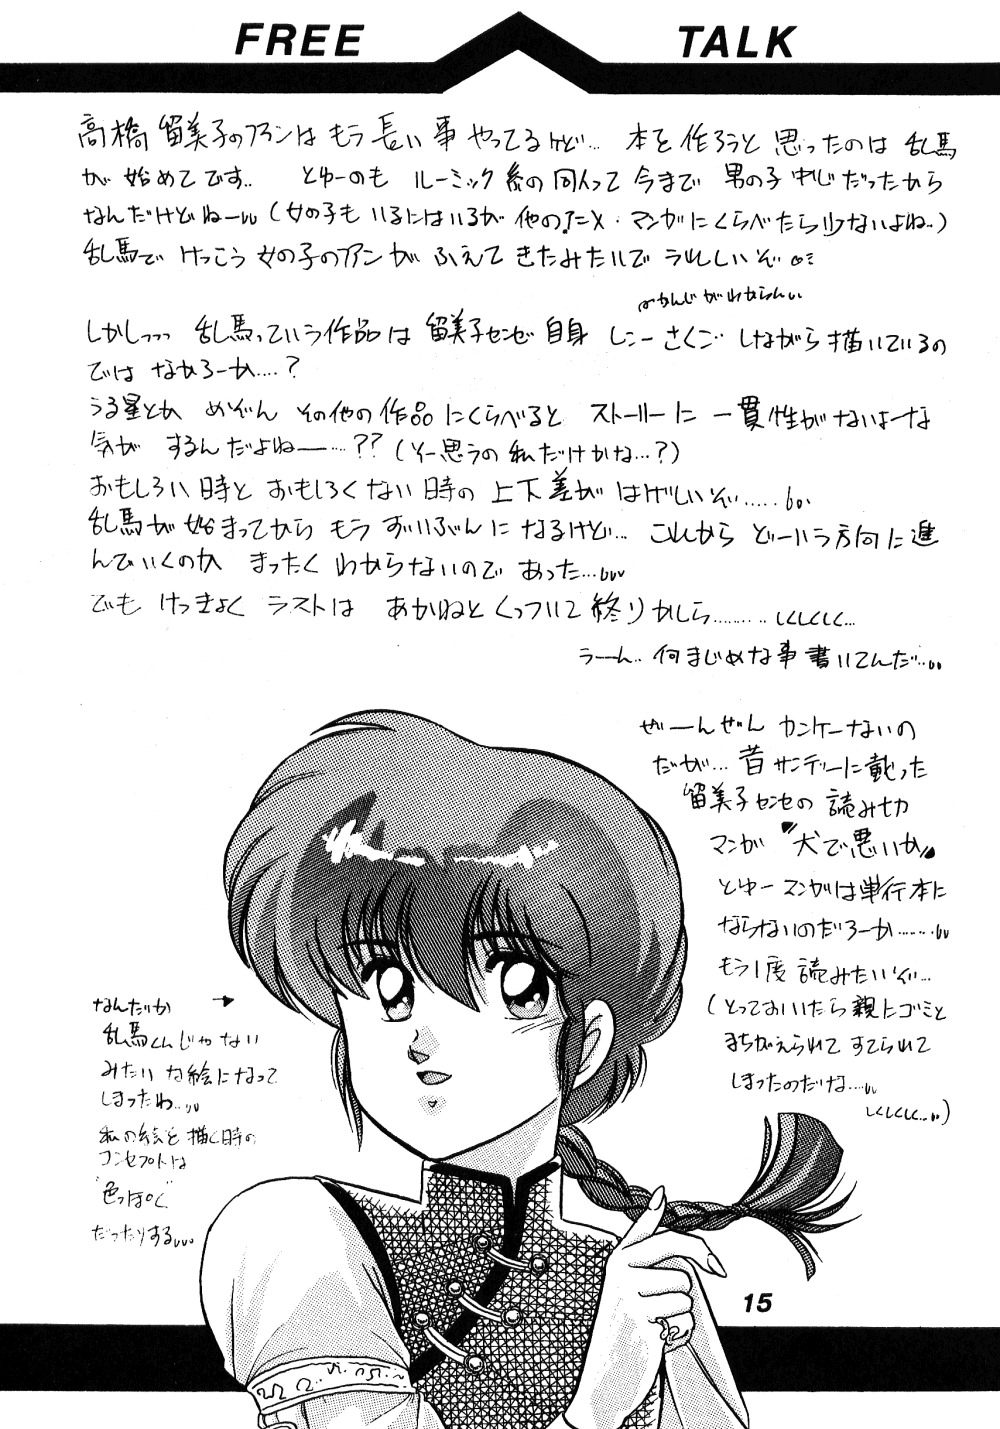 FREE TALK
高橋留美子のファンはもう長い事やってるけど… 本を作ろうと思ったのは乱馬
が始めてです.. とゆーのもルーミック系の同人って今まで男の子中心だったから
なんだけどねー (女の子もいるにはいるが他のアニメ・マンガにくらべたら少ないよね..)
乱馬でけっこう女の子のファンがふえてきたみたいでうれしいぞ
かんじがわからんい
しかしっっっ 乱馬っていう作品は留美子センセ自身 しこーさくご しながら描いているの
ではなかろーか….?
うる星とか めぞん その他の作品にくらべると ストーリーに一貫性がないよーな
気が するんだよねー…?? (そー思うの私だけかな…?)
おもしろい時と おもしろくない時の上下差が はげしいぞ……
乱馬が始まってから もうずいぶんになるけど… これから どーいう方向に進
んでいくのか まったく わからないので あった…
でも けっきょく ラストは あかねと くっついて終りかしら……… しくしくしく…
うーん.. 何まじめな事書いてんだ…
ぜーんぜん カンケーないの
だが… 昔サンデーに載った
留美子センセの 読み切り
マンガ "犬で悪いか"
とゆーマンガは単行本に
ならないのだろーか……
もう1度 読みたいぞ…
(とっておいたら親にゴミと
まちがえられて すてられて
しまったのだな…
しくしくしく…)
なんだか →
乱馬くんじゃない
みたいな絵になって
しまったわ…
私の絵を描く時の
コンセプトは
"色っぽく"
だったりする…
15